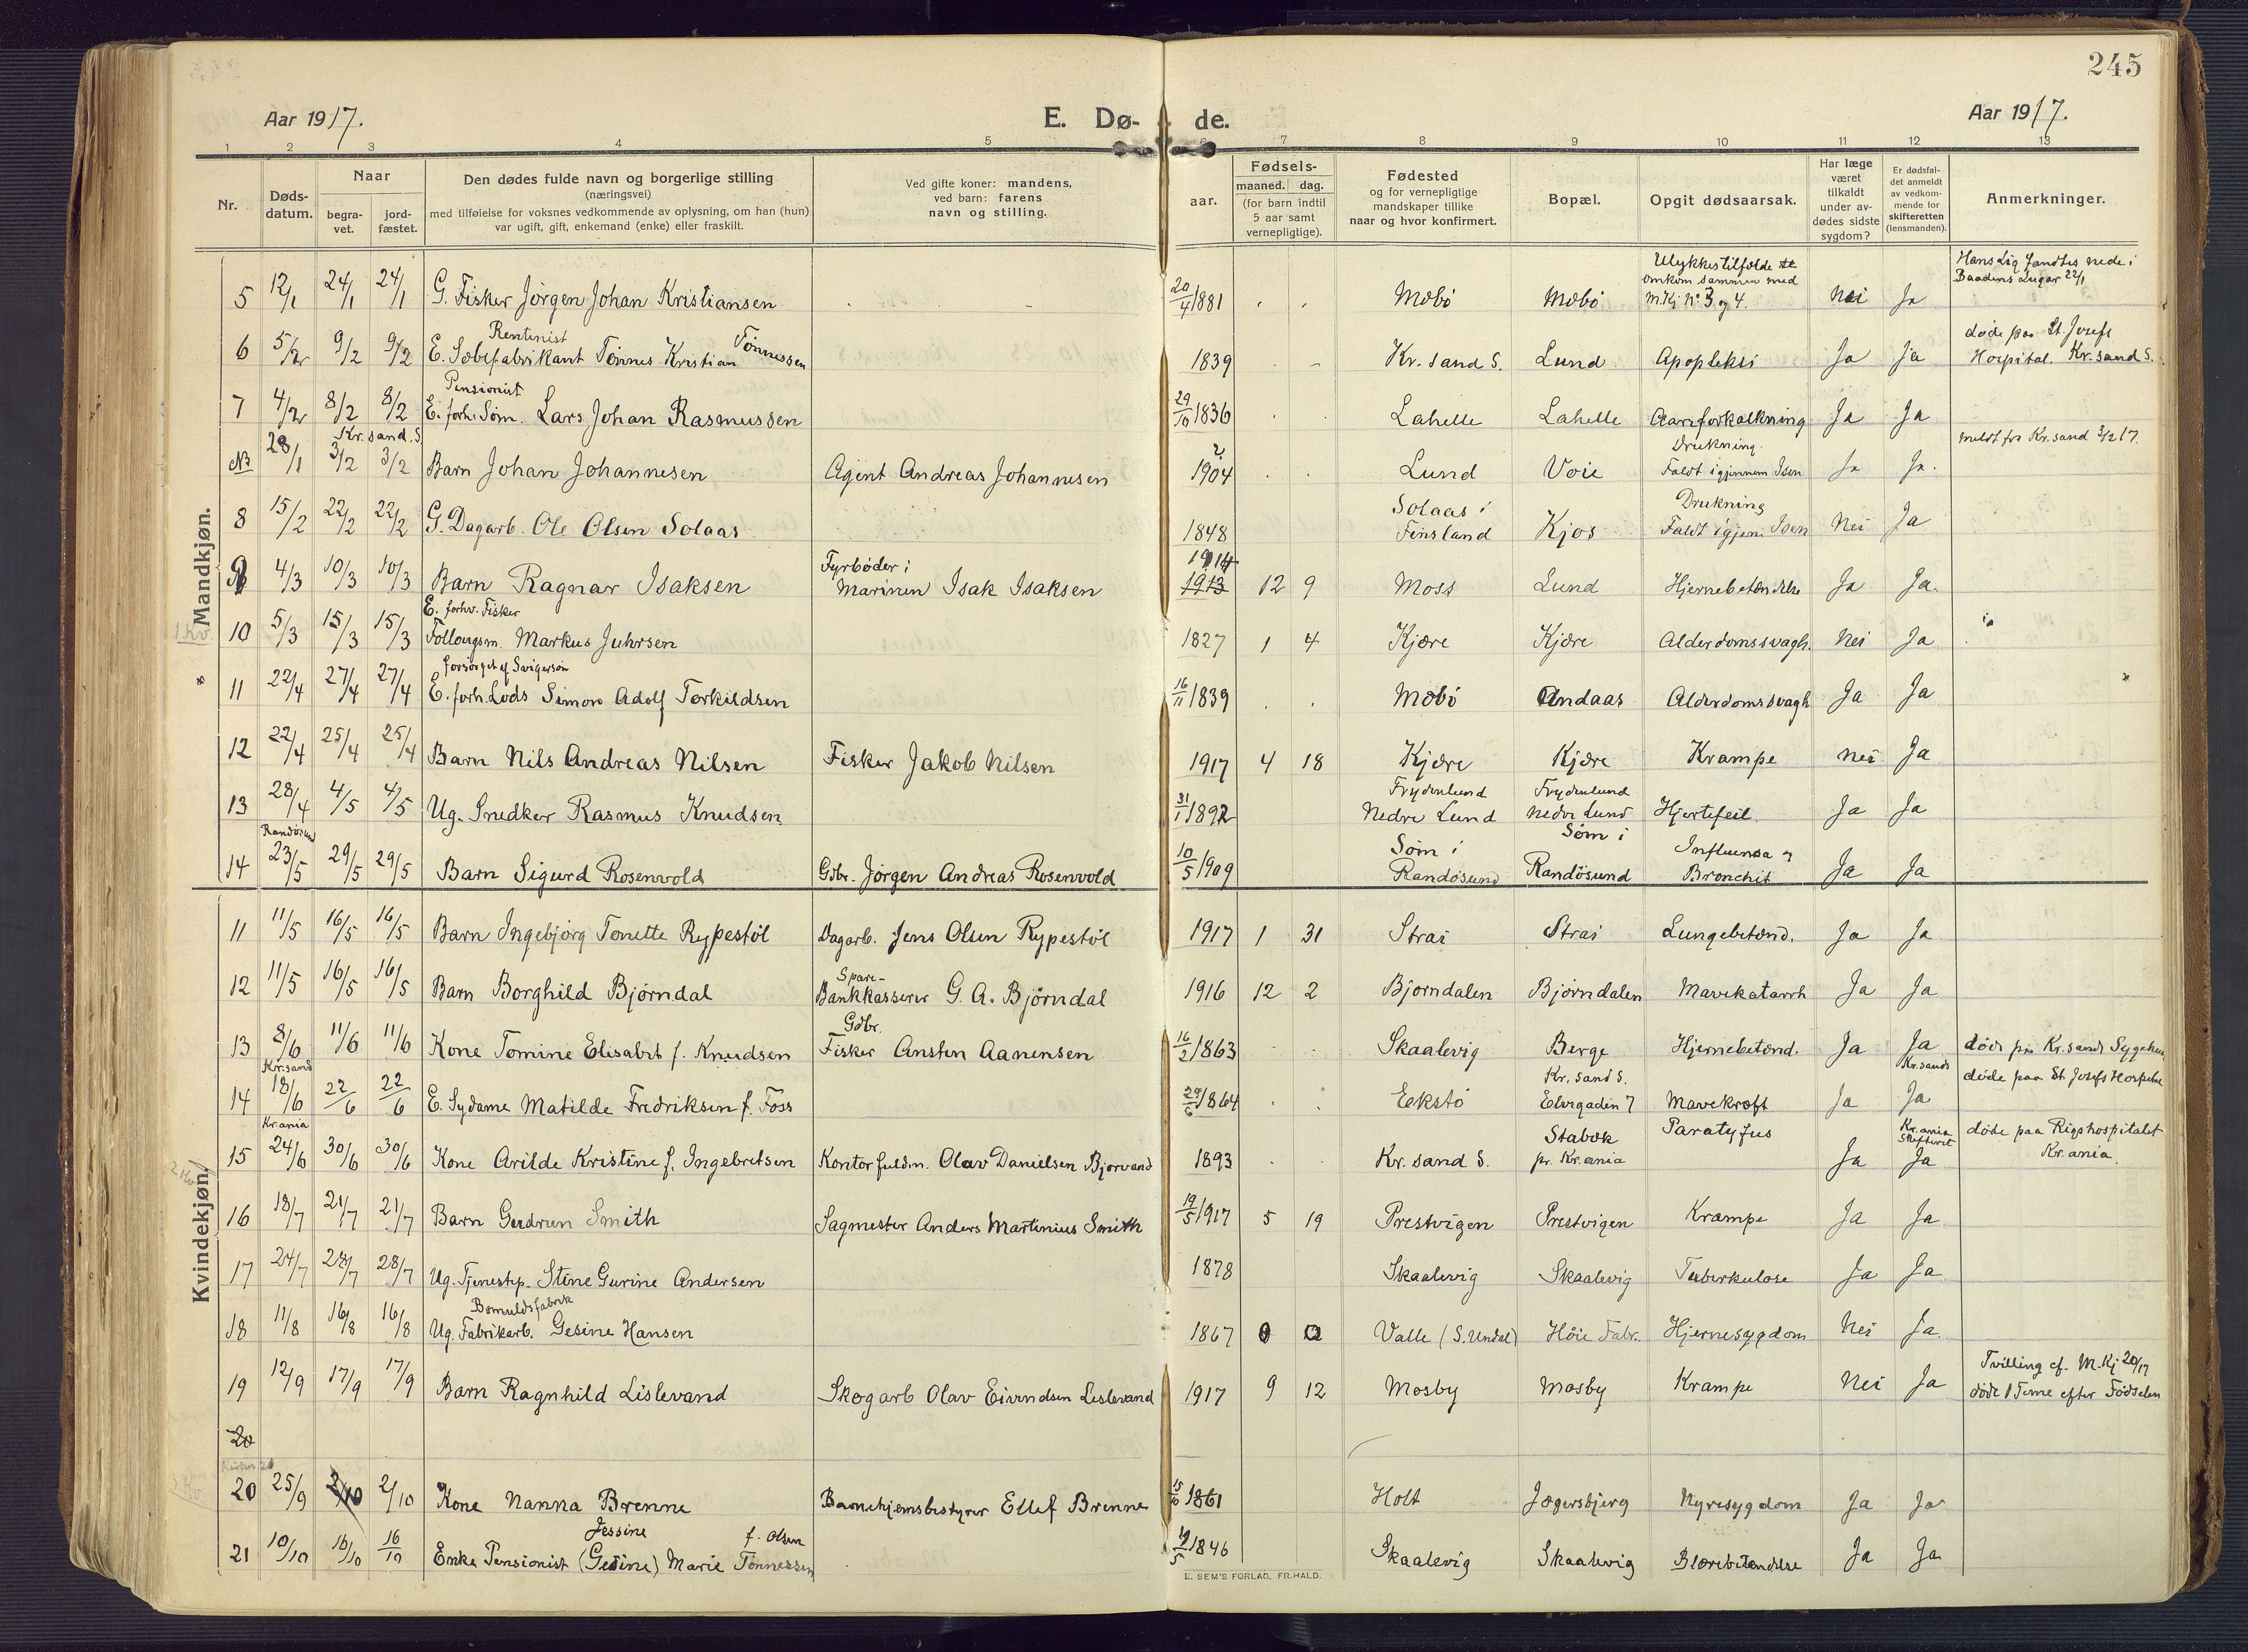 245
Aar 1917.
E. Dø-de.
Aar 1917.
1 2 3 4 5 6 7 8 9 10 11 12 13
Nr.
Døds-datum.
Naar
begra-vet.
jord-fæstet.
Den dødes fulde navn og borgerlige stilling
(næringsvei)
med tilføielse for voksnes vedkommende av oplysning, om han (hun)
var ugift, gift, enkemand (enke) eller fraskilt.
Ved gifte koner: mandens,
ved barn: farens
navn og stilling.
Fødsels-
aar.
maaned. dag.
(for barn indtil
5 aar samt
vernepligtige).
Fødested
og for vernepligtige
mandskaper tillike
naar og hvor konfirmert.
Bopæl.
Opgit dødsaarsak.
Har læge
været
tilkaldt
under av-
dødes sidste
sygdom?
Er dødsfal-
det anmeldt
av vedkom-
mende for
skifteretten
(lensmanden).
Anmerkninger.
Mandkjøn.
5 12/1 24/1 24/1 G. Fisker Jörgen Johan Kristiansen 20/4 1881 Mæbö Mæbö Ulykkestilfælde omkom sammen med M.Kj No 3 og 4. Nei Ja Hans Lig fandtes nede i Baadens Lugar 22/1
6 5/2 9/2 9/2 Rentenist E. Sæbefabrikant Tönnes Kristian Tönnessen 1839 Kr.sand S. Lund Apopleksi Ja Ja döde paa St. Josefs Hospital. Kr.sand S.
7 4/2 8/2 8/2 Pensionist E. forh. Söm. Lars Johan Rasmussen 29/10 1836 Lahelle Lahelle Aareforkalkning Ja Ja
N 28/1 Kr.sand.S 3/2 3/2 Barn Johan Johannesen Agent Andreas Johannesen 1904 ? Lund Voie Drukning. Faldt igjennem Isen Ja Ja. meldt fra Kr.sand 3/2 17.
8 15/2 22/2 22/2 G. Dagarb. Ole Olsen Solaas 1848 Solaas i Finsland Kjos Drukning Faldt igjem. Isen Nei Ja
9 4/3 10/3 10/3 Barn Ragnar Isaksen Fyrböder i Marinen Isak Isaksen 1914 1913 12 9 Moss Lund Hjernebetændelse Ja Ja.
1 Kv.
10 5/3 15/3 15/3 E. forhv. Fisker Föllaugsm. Markus Juhrsen 1827 1 4 Kjære Kjære Alderdomssvagh. Nei Ja
11 22/4 27/4 27/4 forsörget af Svigersön E. forh. Lods Simon Adolf Torkildsen 16/11 1839 Mæbö Andaas Alderdomssvagh Ja Ja
12 22/4 25/4 25/4 Barn Nils Andreas Nilsen Fisker Jakob Nilsen 1917 4 18 Kjære Kjære Krampe Nei Ja
13 28/4 4/5 4/5 Ug. Snedker Rasmus Knudsen 31/1 1892 Frydenlund Nedre Lund Frydenlund Nedre Lund Hjertefeil. Ja Ja
14 Randösund 23/5 29/5 29/5 Barn Sigurd Rosenvold Gdbr. Jörgen Andreas Rosenvold 10/5 1909 Söm i Randösund Söm i Randösund Influensa og Bronchit Ja Ja
Kvindekjøn.
11 11/5 16/5 16/5 Barn Ingebjörg Tonette Rypestöl Dagarb. Jens Olsen Rypestöl 1917 1 31 Strai Strai Lungebetænd. Ja Ja
12 11/5 16/5 16/5 Barn Borghild Björndal Spare-Bankkasserer G. A. Björndal 1916 12 2 Björndalen Björndalen Mavekatarrh Ja Ja
13 8/6 11/6 11/6 Kone Tomine Elisabet f. Knudsen Gdbr. Fisker Ansten Aanensen 16/2 1863 Skaalevig Berge Hjernebetænd. Ja Ja döde paa Kr.sands Sygehus
14 Kr.sand 18/6 22/6 22/6 E. Sydame Matilde Fredriksen f. Foss 29/6 1864 Eekstö Kr.sand S. Elvegaden 7 Mavekræft Ja Kr.sands Ja döde paa St Josefs Hospital
15 Kr.ania 24/6 30/6 30/6 Kone Arilde Kristine f. Ingebretsen Kontorfuldm. Olav Danielsen Bjorvand 1893 Kr.sand S. Stabæk pr. Kr.ania Paratyfus Ja Kr.ania Skifteret Ja döde paa Rigshospitalet Kr.ania
2 Kv
16 18/7 21/7 21/7 Barn Gudrun Smith Sagmester Anders Martinius Smith 19/5 1917 5 19 Prestvigen Prestvigen Krampe Ja Ja
17 24/7 28/7 28/7 Ug. Tjenestep. Stine Gurine Andersen 1878 Skaalevig Skaalevig Tuberkulose Ja Ja
18 11/8 16/8 16/8 Bomuldsfabrik Ug. Fabrikarb. Gesine Hansen 1867 0 0 Valle (S. Undal) Höie Fabr. Hjernesygdom Nei Ja.
19 12/9 17/9 17/9 Barn Ragnhild Lislevand Skogarb Olav Eivendsen Lislevand 1917 9 12 Mosby Mosby Krampe Nei Ja Tvilling cf. M.Kj 20/17 döde 1 Time efter Födselen
20
2 Kv
20 25/9 2/10 2/10 Kone Nanna Brenne Barnehjemsbestyrer Ellef Brenne 15/10 1861 Holt Jægersbjerg Nyresygdom Ja Ja
21 10/10 16/10 16/10 Enke Pensionist Jessine (Gesine) Marie Tönnessen f. Olsen 19/5 1846 Skaalevig Skaalevig Blærebetændelse Ja Ja
E. SEM'S FORLAG, FR.HALD.